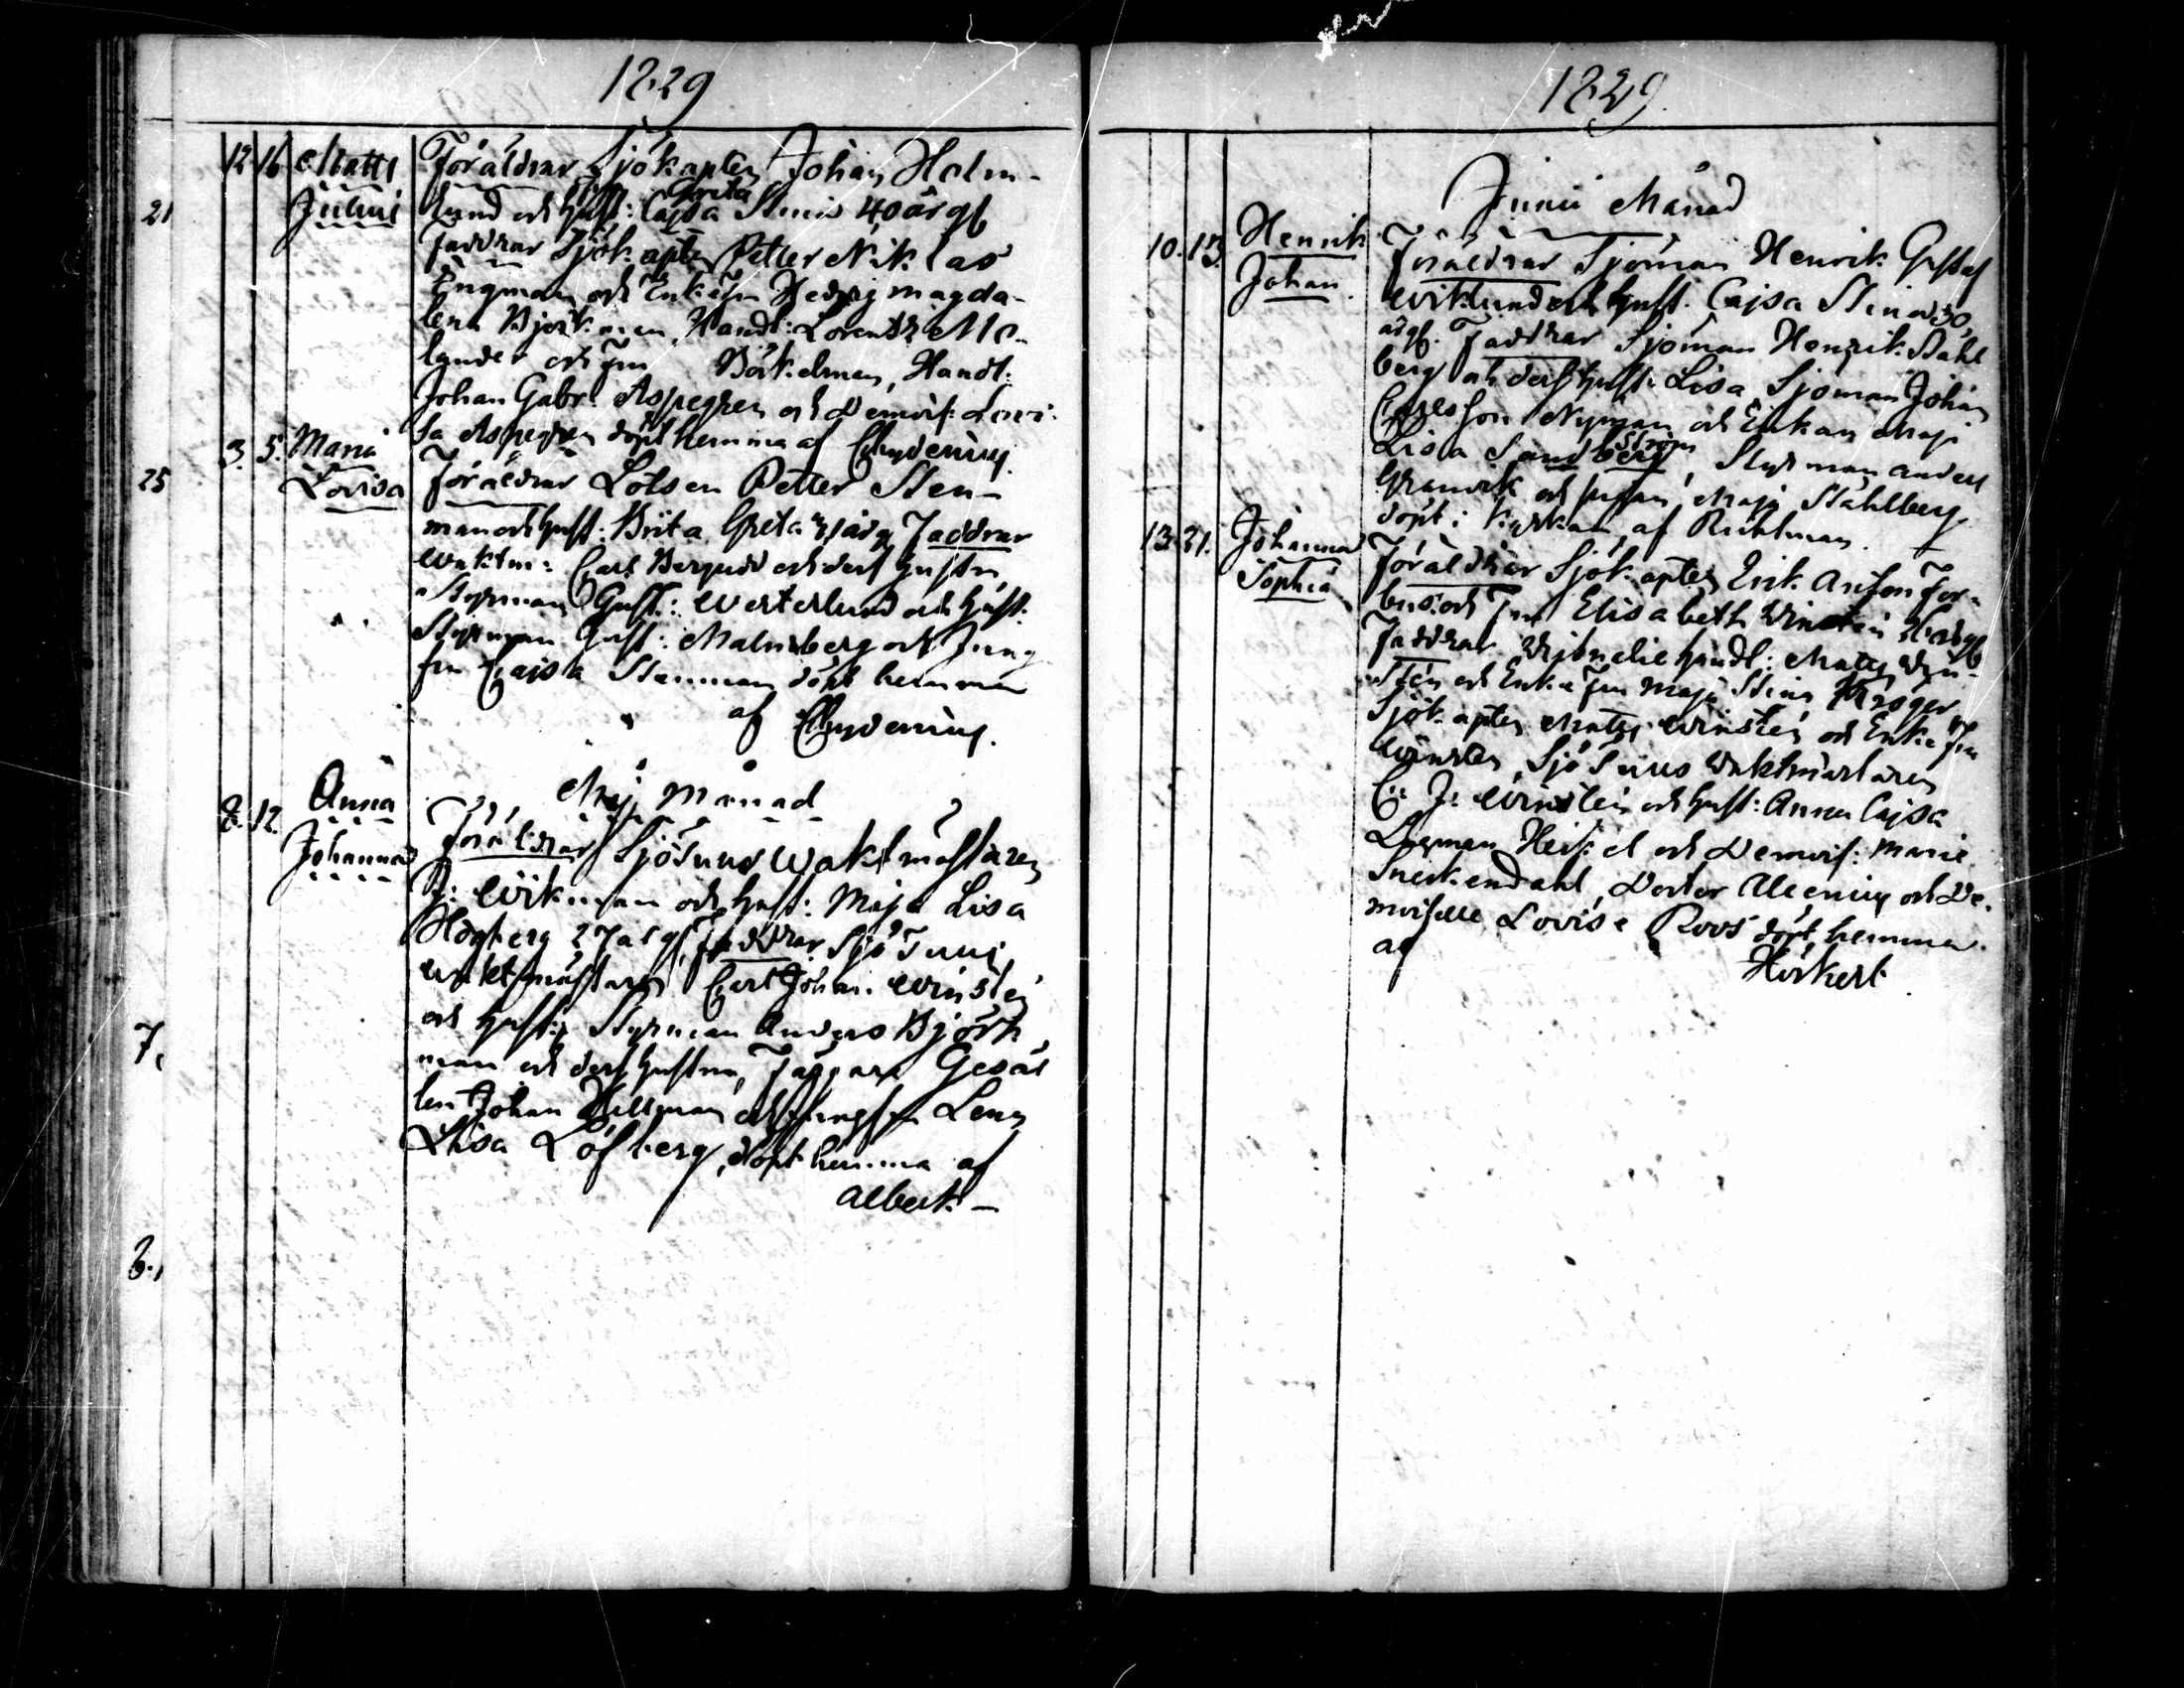 1829
12 16 Matts Föräldrar Sjökapten Johan Holm-
21 Julius lund och hust: Cajsa Greta Stenis 40 årgl
Faddrar Sjök apten Petter Niklas
Engman och Enkefru Hedvig Magda-
lena Björkman, Handl: Lorentz Me-
lander och fru Böckelman, Handl:
Johan Gabr: Aspegren och Demois: Lovi-
sa Aspegren döpt hemma af Chydenius.
3. 5. Maria
25 Lovisa Föräldrar Lotsen Petter Sten-
man och hust. Brita Greta årg Faddrar
Waktm: Carl Bergudd och dess hustru,
Styrman Gust: Westerlund och hust:
Styrman Gust: Malmberg och Jung-
fru Cajsa Stenman döpt hemma
af Chydenius.
Maj Månad
8. 12. Anna
Johanna Föräldrar Sjötuns Waktmästaren
J: Wikman och hust: Maja Lisa
Högberg 27 årgl, Faddrar Sjö Tuns
waktmästaren Carl Johan Winstén
och hustru Styrman Anders Björk
7. man och dess hustru, Färgare Gesäl
len Johan Hellman och Jungfru Lena
Lisa Löfberg, döpt hemma af
Albert. –
1829.
Junii Månad
10. 13. Henrik
Johan Föräldrar Sjöman Henrik Gustaf
Wiklund och hust. Cajsa Stina 30,
årgl. Faddrar Sjöman Henrik Stahl
berg och dess hust: Lisa, Sjöman Johan
Carlsson Nyman och Enkan Maja
Lisa Sandström, Styrman Anders
Granvik och pigan Maja Stahlberg
döpt i kyrkan af Kuhlman.
13. 21. Johanna
Sophia Föräldrar Sjökapten Erik Anton For-
bus och Fru Elisabeth Winstén årgl
Faddrar Handl: Matts Win-
stén och Enke Fru Maja Stina Kröger
Sjökapten Matts Winstén och Enke Fru
Winstén, Sjö Tuns Waktmästaren
C: J: Winstén och hust: Anna Cajsa
Lagman Heikel och Demois: Marie
Sneckendahl, Doctor och De-
moiselle Lovise Roos döpt hemma
af